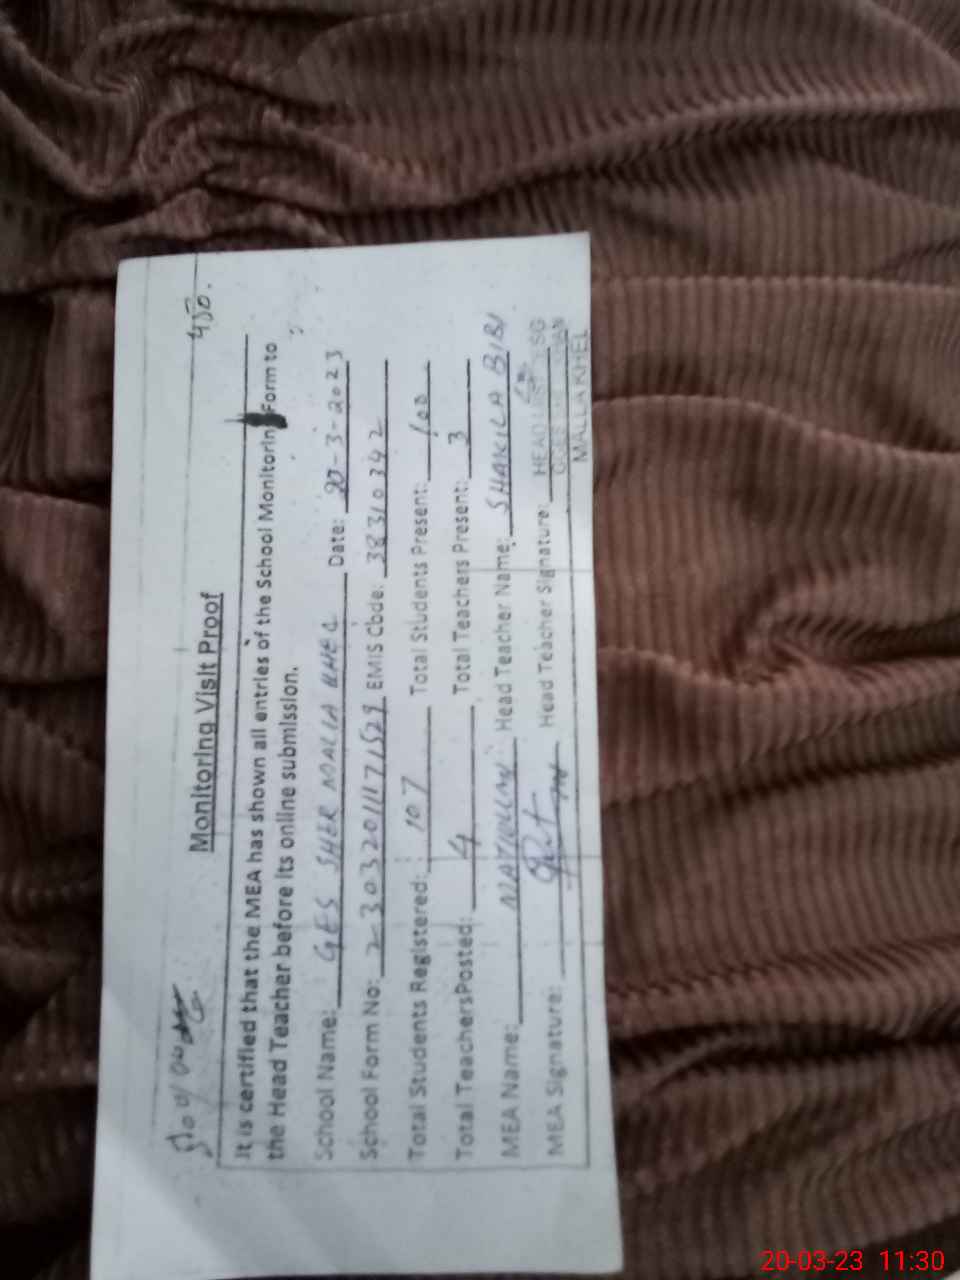 450.
Monitoring Visit Proof
It is certified that the MEA has shown all entries of the School Monitorin Form to
the Head Teacher before its online submission.
School Name: GES SHER MALLA KHEL Date: 20-3-2023
School Form No: 23032011171529 EMIS Code: 38310342
Total Students Registered: 107 Total Students Present: 100
Total TeachersPosted: 4 Total Teachers Present: 3
MEA Name: MATIULLAH Head Teacher Name: SHAKILA BIBI
MEA Signature: Head Teacher Signature:
HEAD
MALLA KHEL
20-03-23 11:30